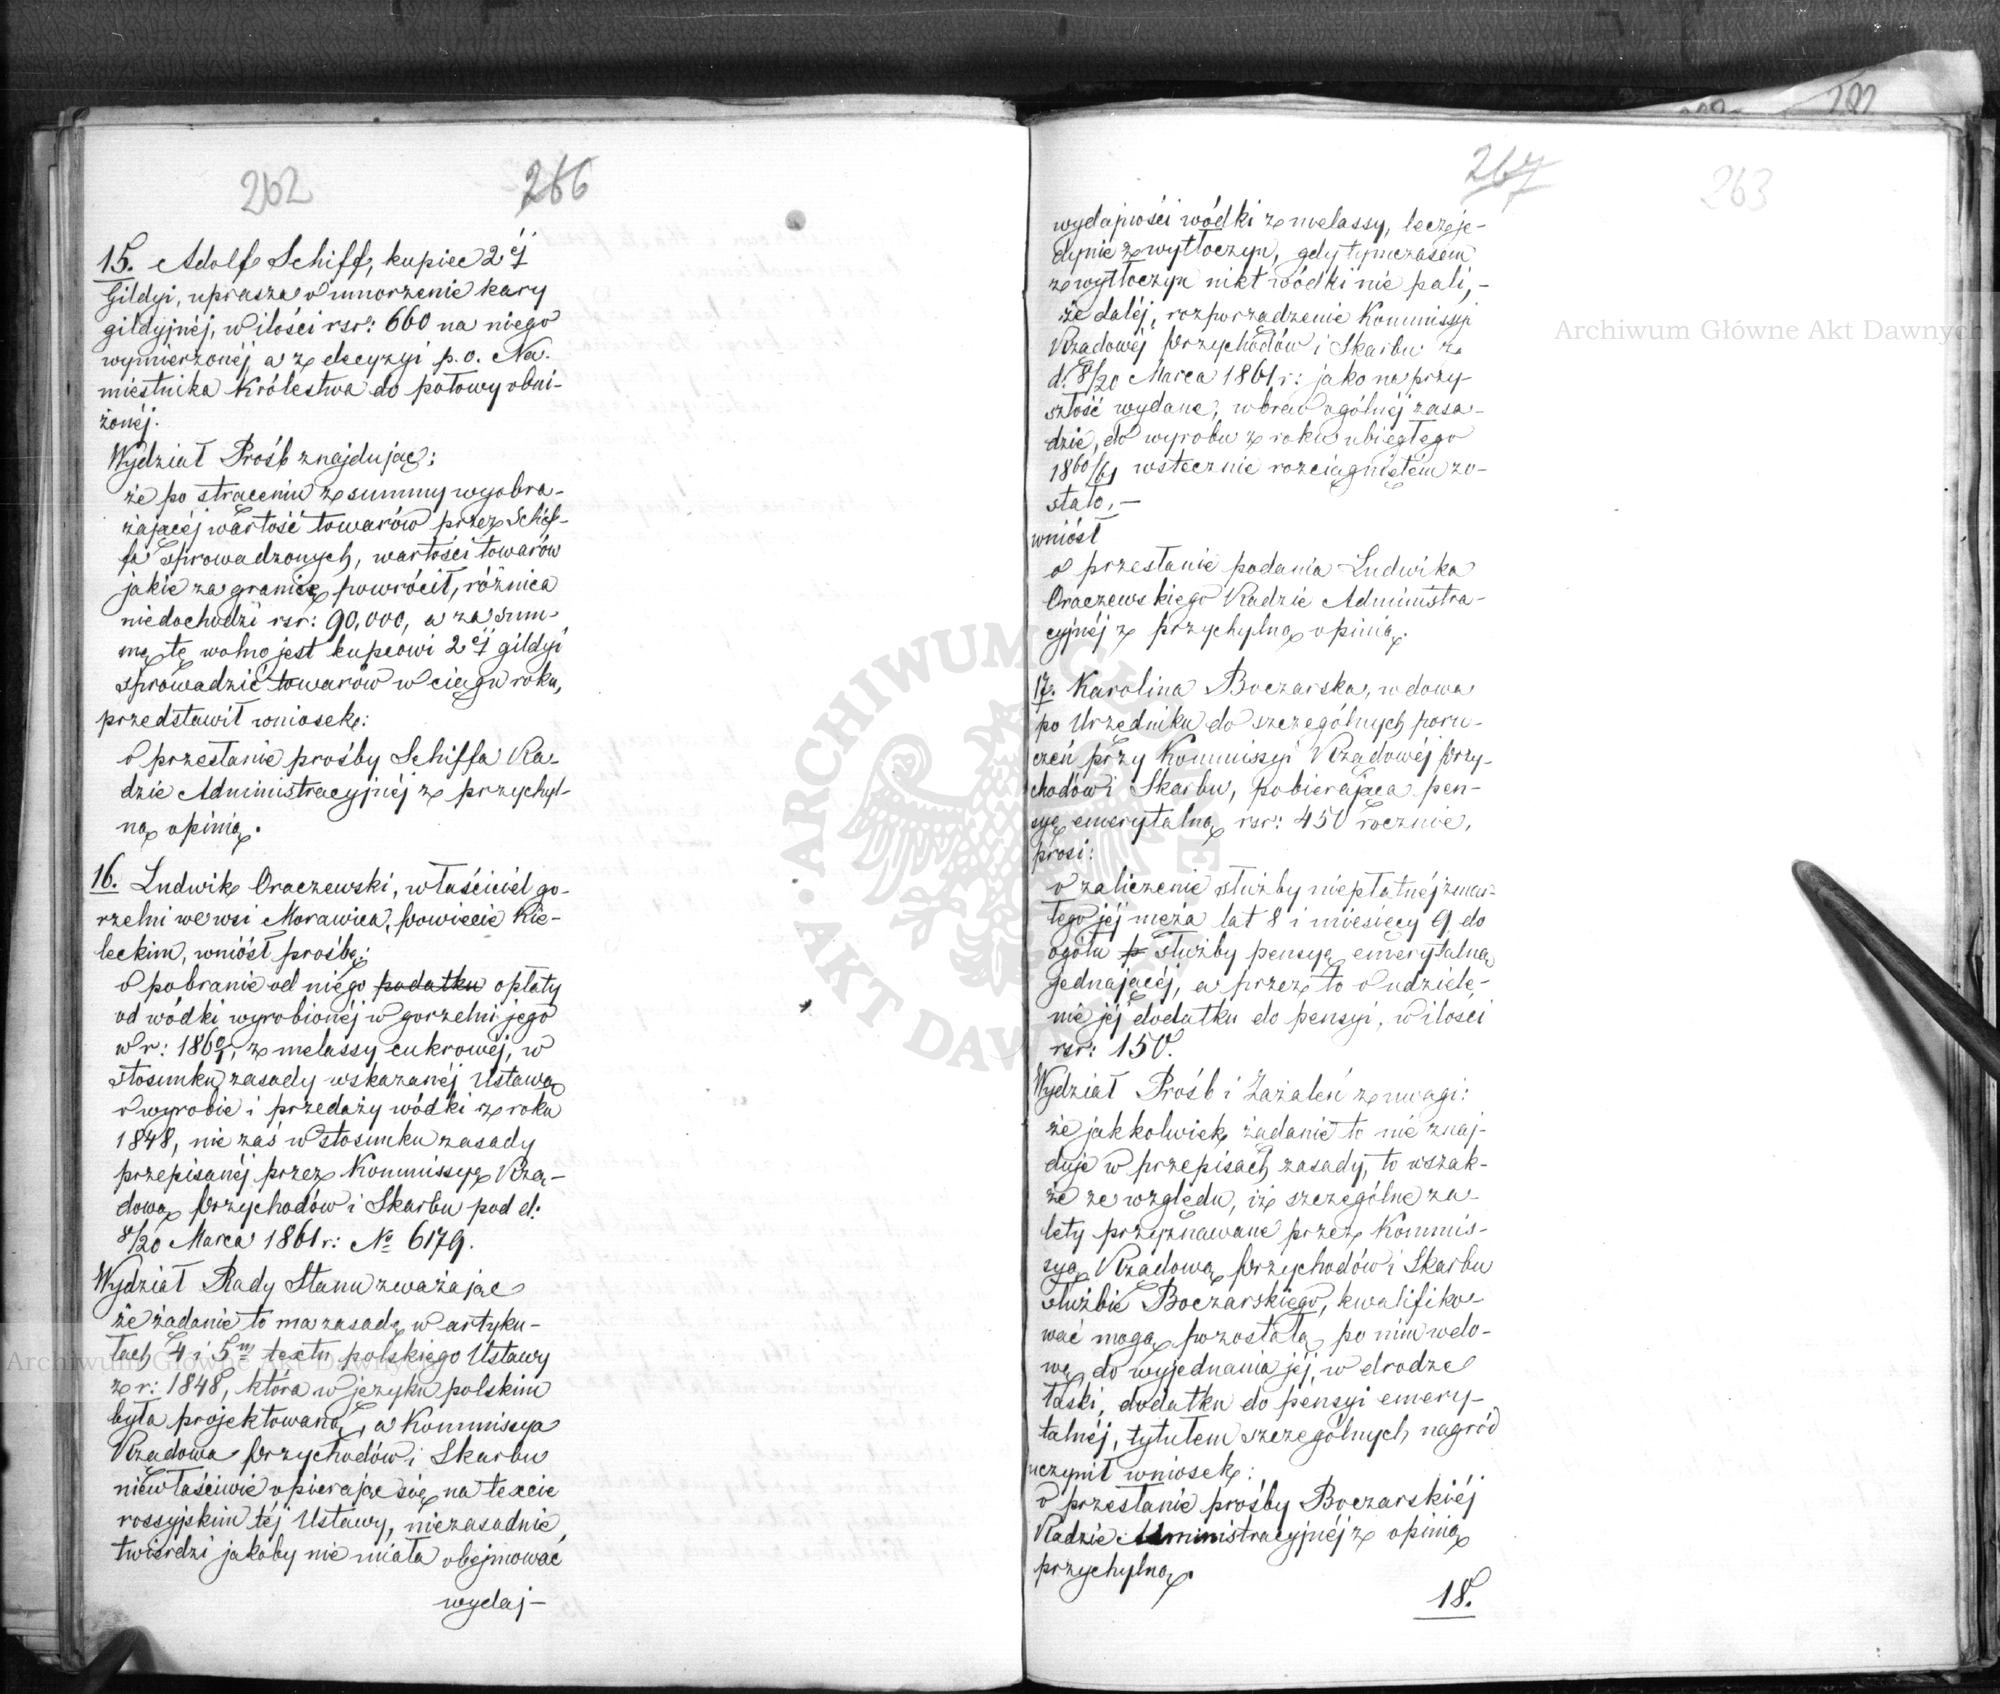 262
266
15. Adolf Schiff, kupiec 2ej
Gildyi, uprasza o umorzenie kary
gildyjnéj, w ilości rsr: 660 na niego
wymierzonéj a z decyzyi p. o. Na-
miestnika Królestwa do połowy obni-
żonéj.
Wydział Próśb znajdując:
że po strąceniu z summy wyobra-
żającéj wartość towarów przez Schif-
fa sprowadzonych, wartości towarów
jakie za granicę powrócił, różnica
niedochodzi rsr: 90,000, a za sum-
mę tę wolno jest kupcowi 2ej gildyi
sprowadzić towarów w ciągu roku,
przedstawił wniosek:
o przesłanie prośby Schiffa Ra-
dzie Administracyjnéj z przychyl-
ną opinią.
16. Ludwik Oraczewski, właściciel go-
rzelni we wsi Morawica, Powiecie Kie-
leckim, wniósł prośbę:
o pobranie od niego podatku opłaty
od wódki wyrobionéj w gorzelni jego
w r: 1860/1, z melassy cukrowéj, w
stosunku zasady wskazanéj Ustawą
o wyrobie i przedaży wódki z roku
1848, nie zaś w stosunku zasady
przepisanéj przez Kommissyę Rzą-
dową Przychodów i Skarbu pod d:
8/20 Marca 1861 r: No 6179.
Wydział Rady Stanu zważając
że żądanie to ma zasadę w artyku-
łach 4 i 5m textu polskiego Ustawy
z r: 1848, która w języku polskim
była projektowaną, a Kommissya
Rządowa Przychodów i Skarbu
niewłaściwie opierając się na texcie
rossyjskim téj Ustawy, niezasadnie
twierdzi jakoby nie miała obejmować
wydaj-
267
263
wydajności wódki z melassy, lecz je-
dynie z wytłoczyn, gdy tymczasem
z wytłoczyn nikt wódki nie pali,-
że daléj, rozporządzenie Kommissyi
Rządowéj Przychodów i Skarbu z
d. 8/20 Marca 1861 r: jako na przy-
szłość wydane, wbrew ogólnéj zasa-
dzie, do wyrobu z roku ubiegłego
1860/61 wstecznie rozciągniętém zo-
stało,-
wniósł
o przesłanie podania Ludwika
Oraczewskiego Radzie Administra-
cyjnéj z przychylną opinią.
17. Karolina Boczarska, wdowa
po Urzędniku do szczególnych poru-
czeń przy Kommissyi Rządowéj Przy-
chodów i Skarbu, pobierająca pen-
syę emerytalną rsr: 450 rocznie,
prosi:
o zaliczenie służby niepłatnéj zmar-
łego jéj męża lat 8 i miesięcy 9 do
ogółu p służby pensyę emerytalną
jednającéj, a przez to o udziele-
nie jéj dodatku do pensyi, w ilości
rsr: 150.
Wydział Próśb i Zażaleń z uwagi:
że jakkolwiek żądanie to nie znaj-
duje w przepisach zasady, to wszak-
że ze względu, iż szczególne za-
lety przyznawane przez Kommis-
syą Rządową Przychodów i Skarbu
służbie Boczarskiego, kwalifiko-
wać mogą pozostałą po nim wdo-
wę do wyjednania jéj, w drodze
łaski, dodatku do pensyi emery-
talnéj, tytułem szczególnych nagród
uczynił wniosek:
o przesłanie prośby Boczarskiéj
Radzie Administracyjnéj z opinią
przychylną.
18.
Archiwum Główne Akt Dawnych
Archiwum Główne Akt Dawnych
ARCHIWUM GŁÓWNE AKT DAWNYCH